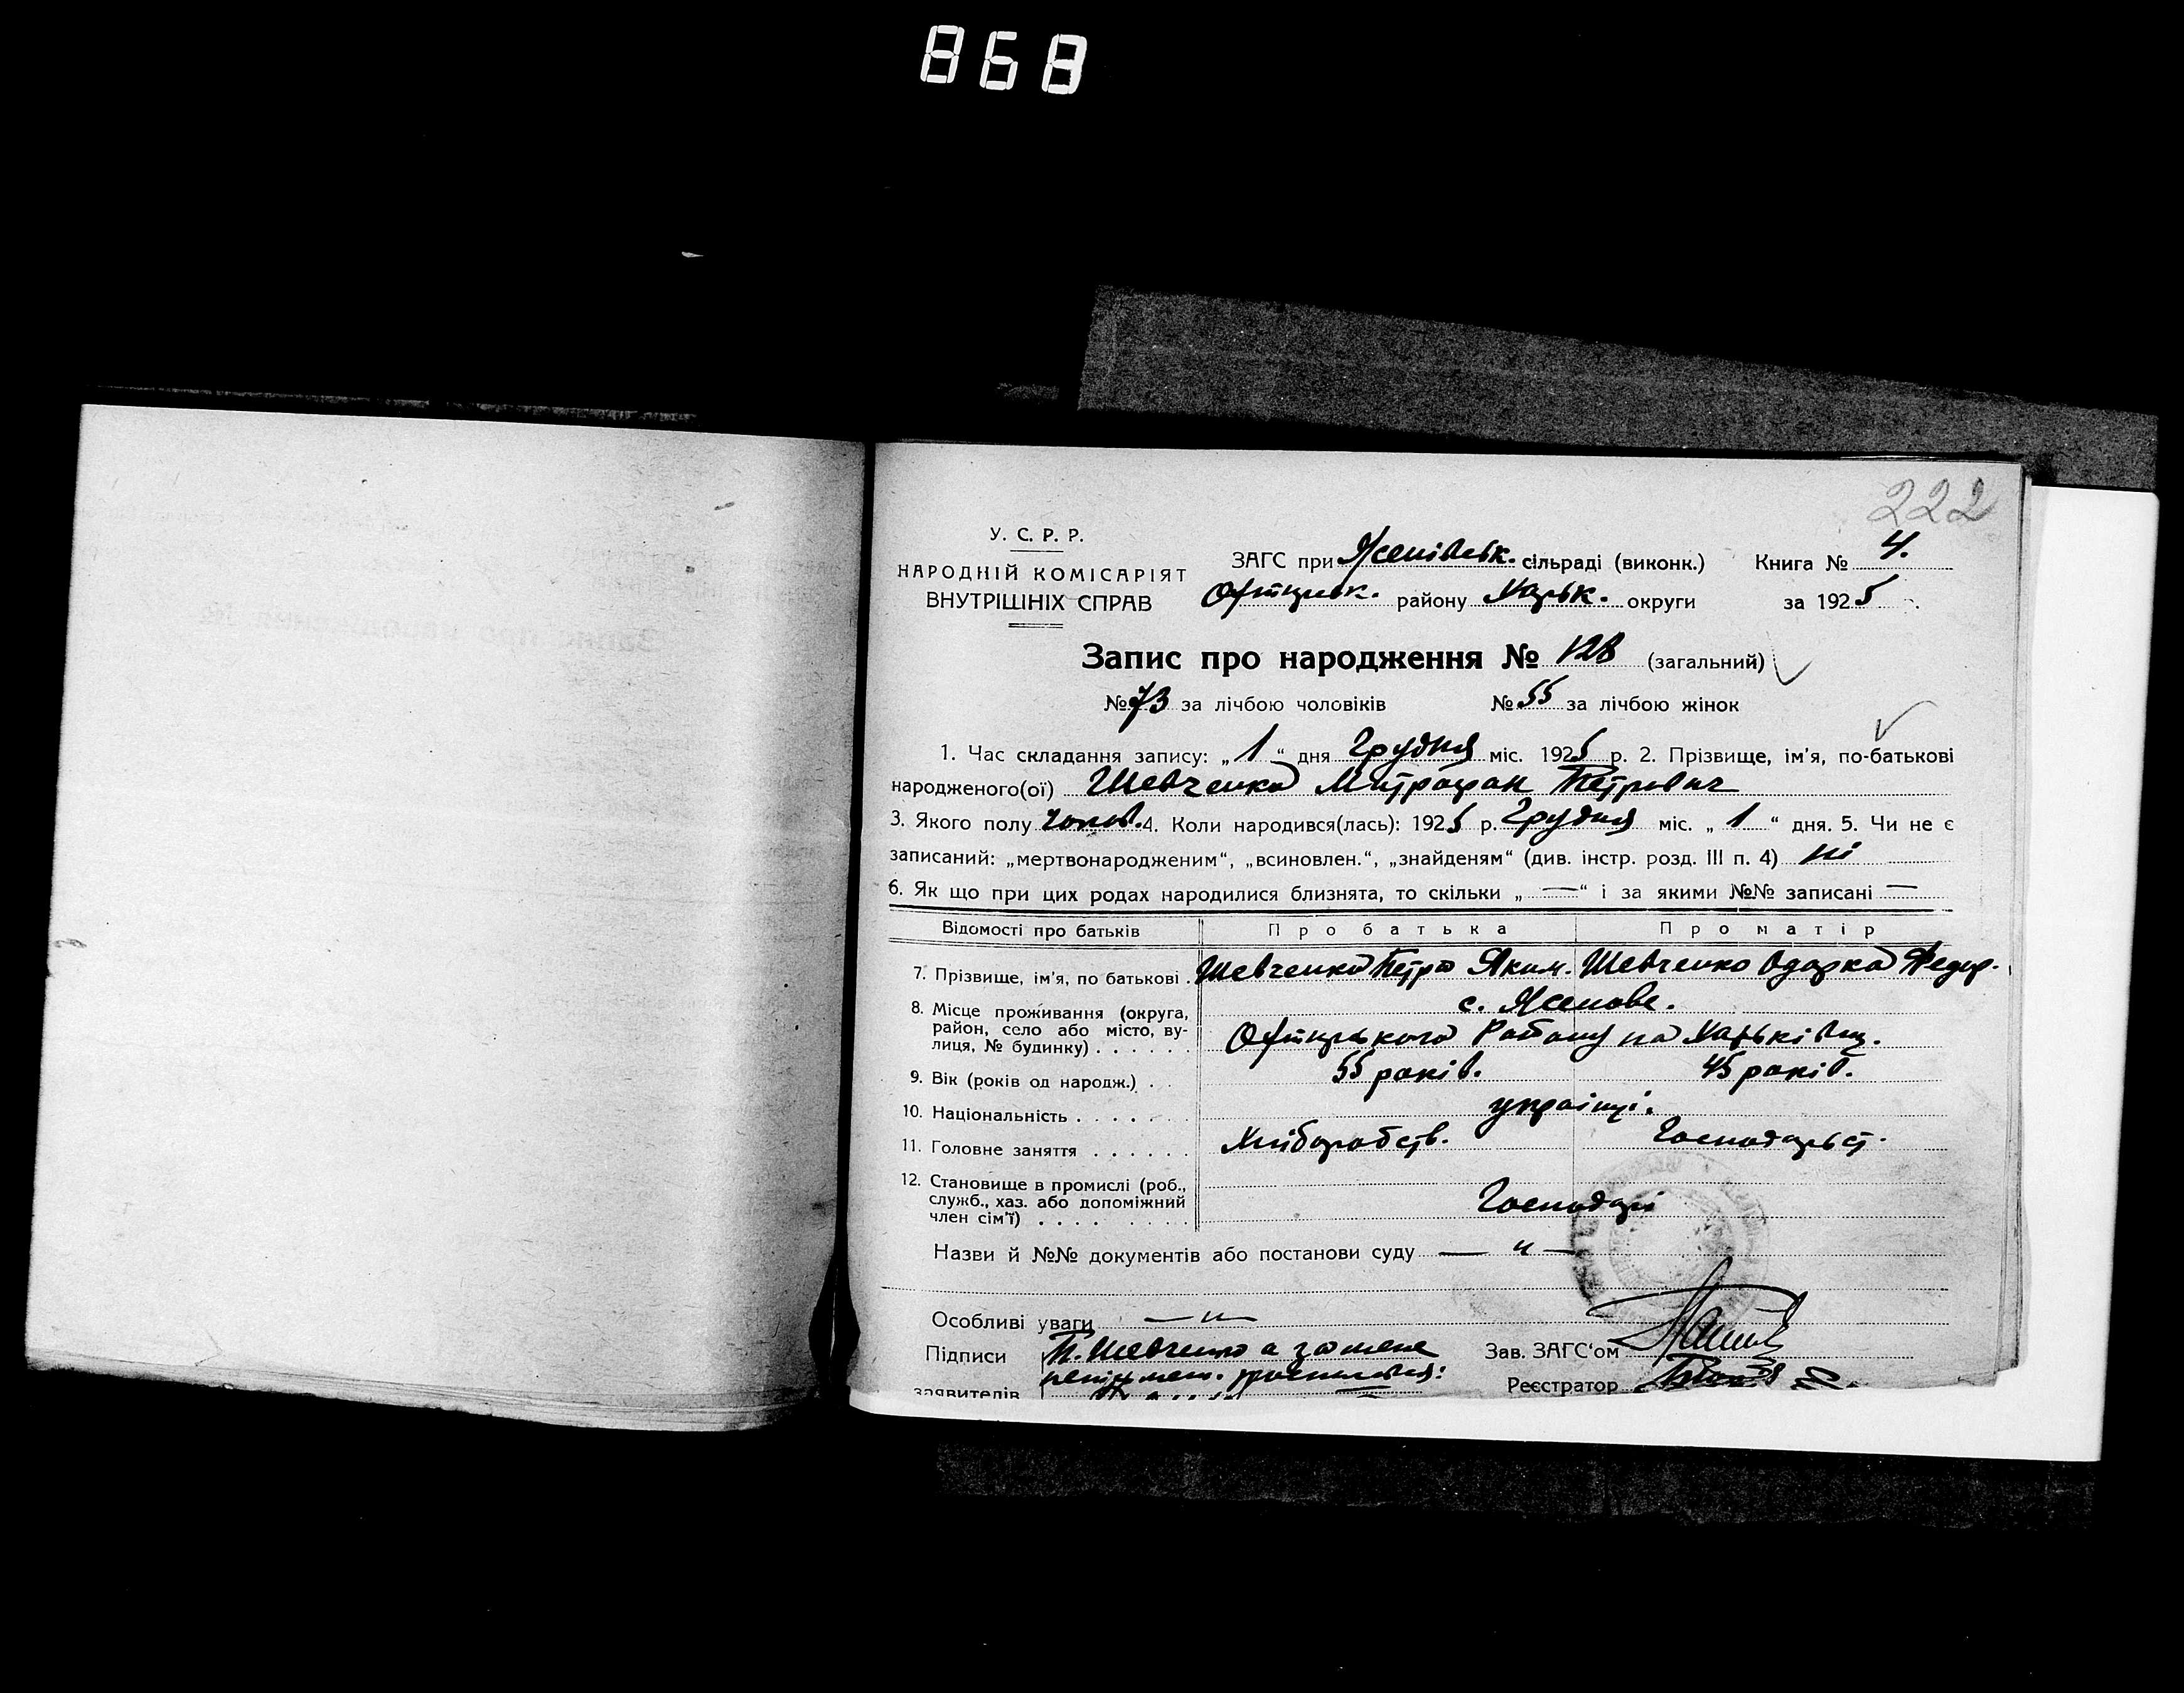 868
222
У. С. Р. Р.
НАРОДНІЙ КОМІСАРІЯТ
ВНУТРІШНІХ СПРАВ
ЗАГС при Ясенівськ. сільраді (виконк.) Книга № 4.
Охтирськ. району Харьк. округи за 1925
Запис про народження № 128 (загальний)
№ 73 за лічбою чоловіків № 55 за лічбою жінок
1. Час складання запису: „ 1 “ дня Грудня міс. 1925 р. 2. Прізвище, ім'я, по-батькові
народженого(ої) Шевченко Митрофан Петрович
3. Якого полу чолов. 4. Коли народився(лась): 1925 р. Грудня міс. „ 1 “ дня. 5. Чи не є
записаний: „мертвонародженим“, „всиновлен.“, „знайденям“ (див. інстр. розд. III п. 4) ні
6. Як що при цих родах народилися близнята, то скільки „ — “ і за якими №№ записані —
Відомості про батьків Про батька Про матір
7. Прізвище, ім'я, по батькові . Шевченко Петро Яким. Шевченко Одарка Федор.
8. Місце проживання (округа,
район, село або місто, ву-
лиця, № будинку) . . . . . .
с. Ясенове.
Охтирського Району на Харьківщ.
9. Вік (років од народж.) . . 55 років. 45 років.
10. Національність . . . . . . українці.
11. Головне заняття . . . . . . Хліборобств. Господарьст.
12. Становище в промислі (роб.,
служб., хаз. або допоміжний
член сім'ї) . . . . . . . .
Господарі
Назви й №№ документів або постанови суду — „ —
Особливі уваги — „ —
Підписи П. Шевченко а за мене
заявителів
Зав. ЗАГС'ом
Реєстратор